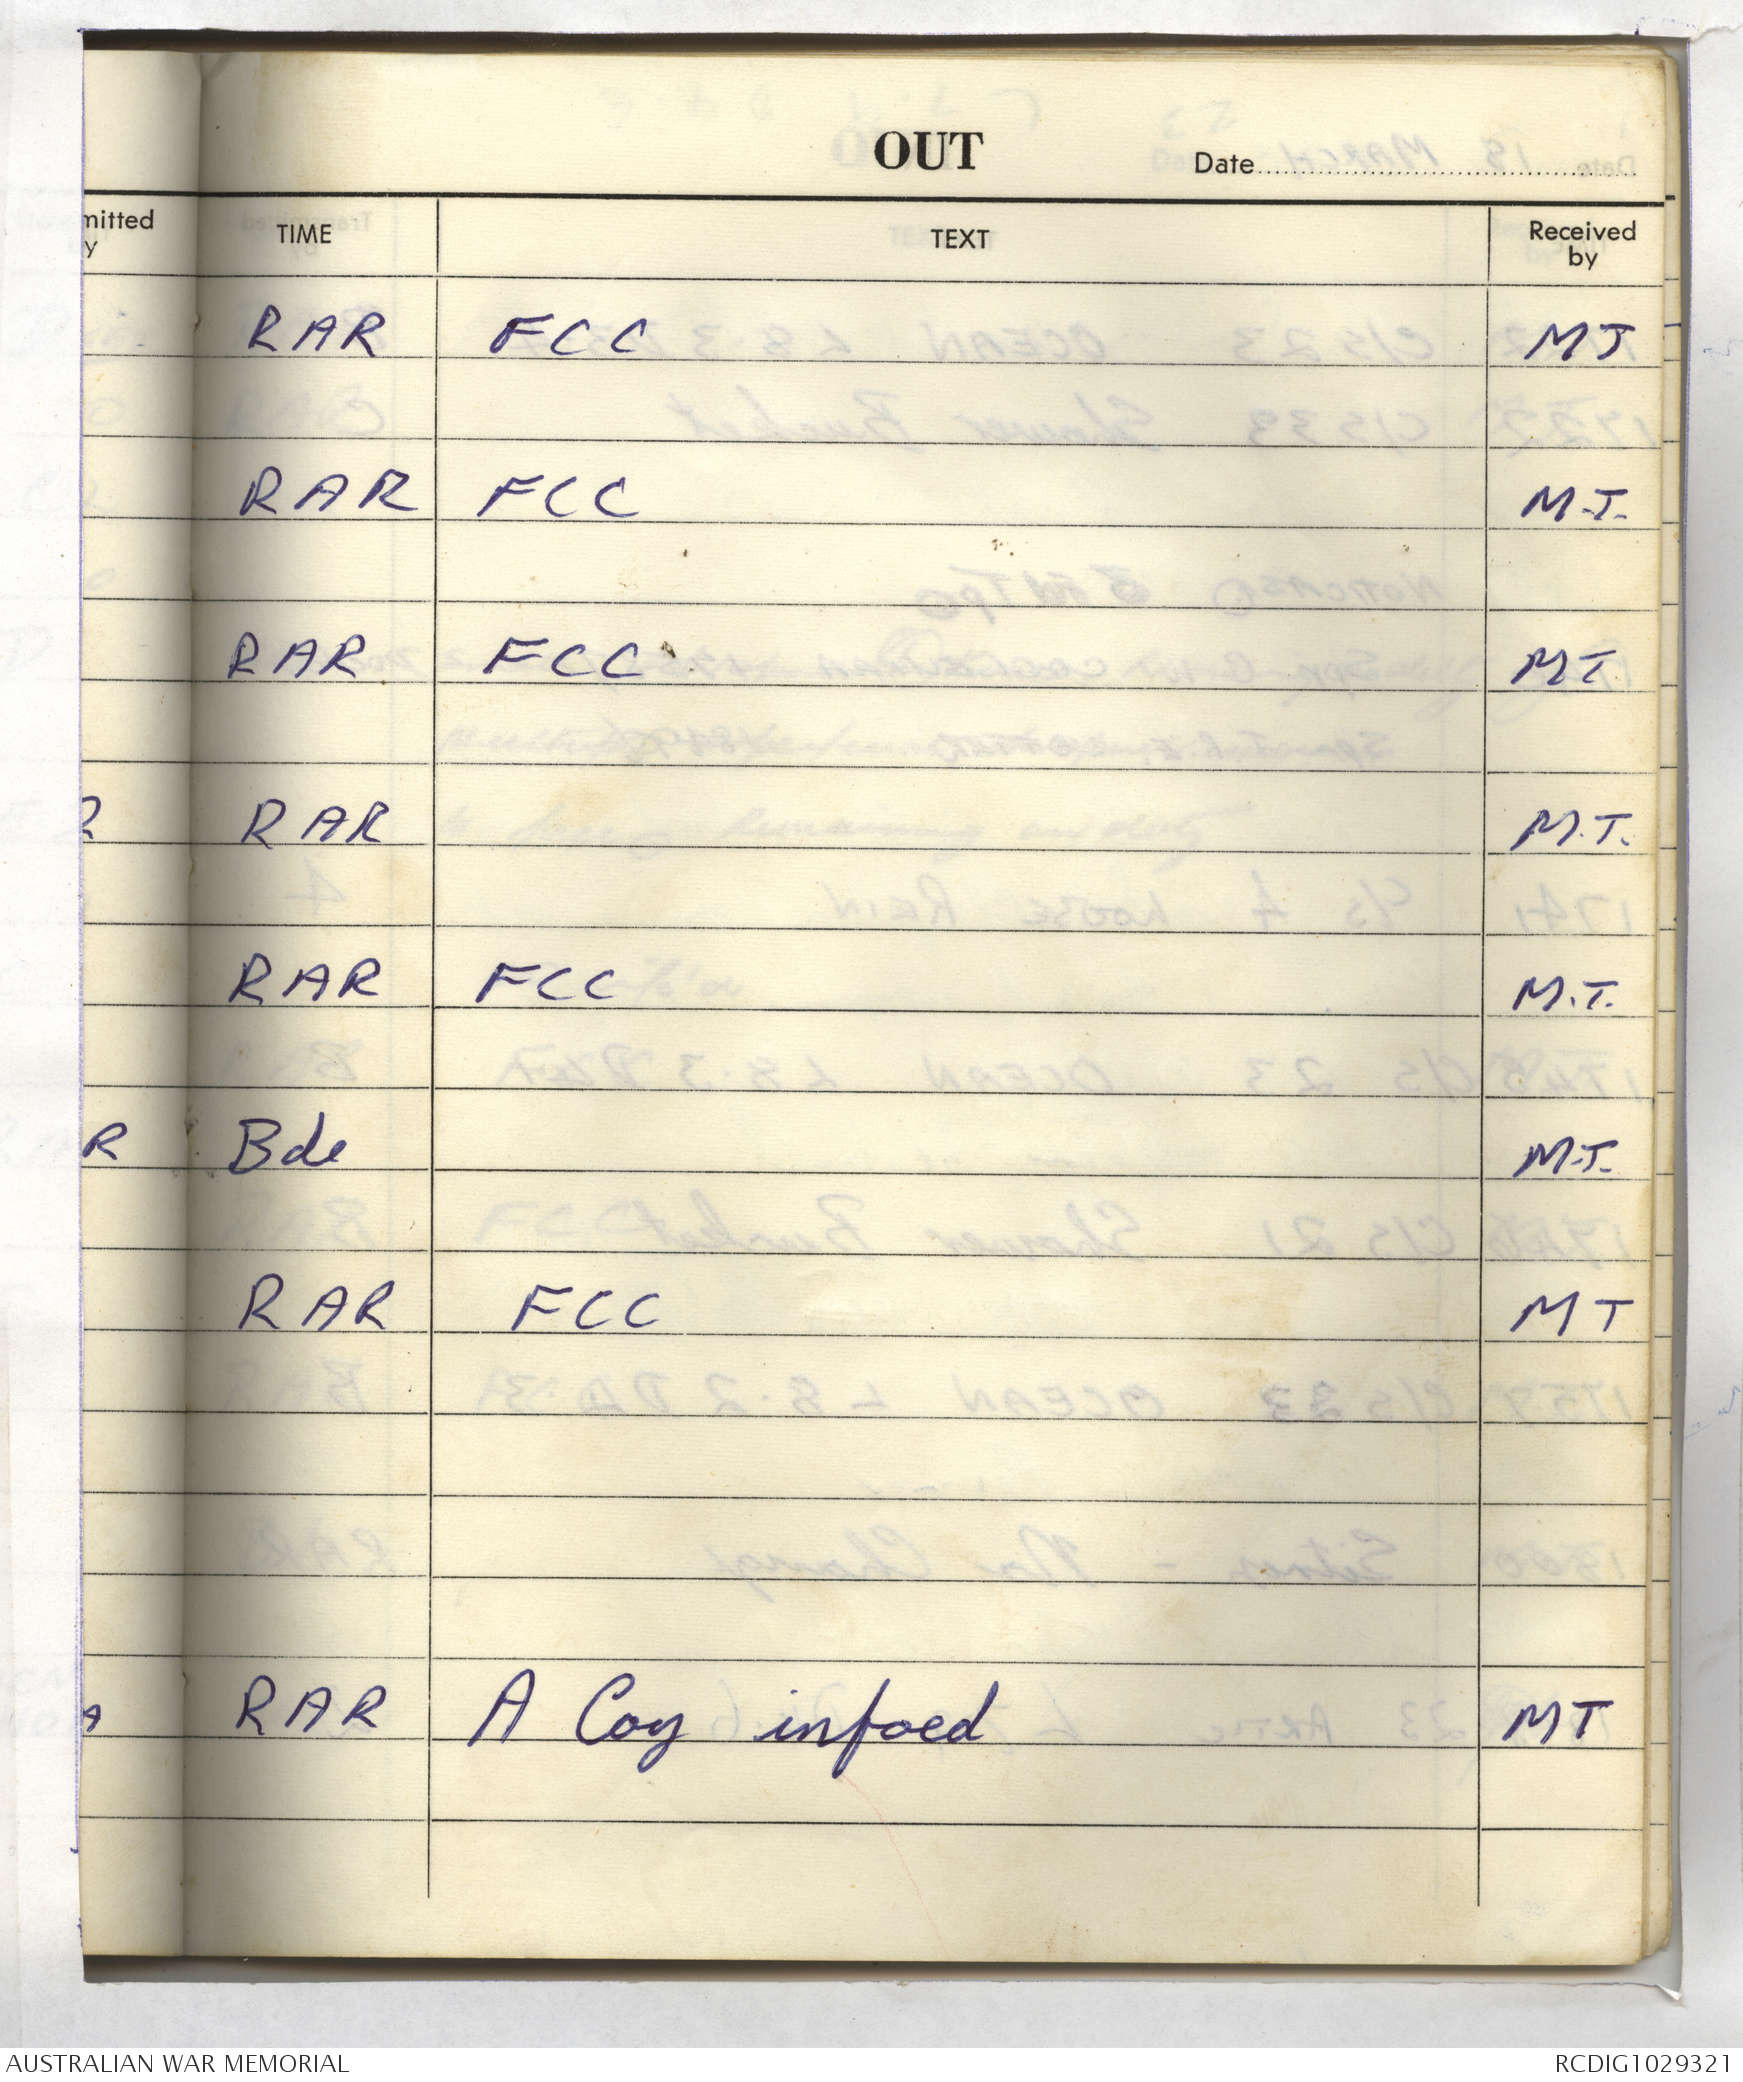 OUT
Date
mitted
y
TIME
TEXT
Received
by
RAR FCC MJ
RAR FCC M.J.
RAR FCC MT
R RAR M.T.
RAR FCC M.T.
R Bde M.T.
RAR FCC MT
A RAR A Coy infoed MT
AUSTRALIAN WAR MEMORIAL
RCDIG1029321